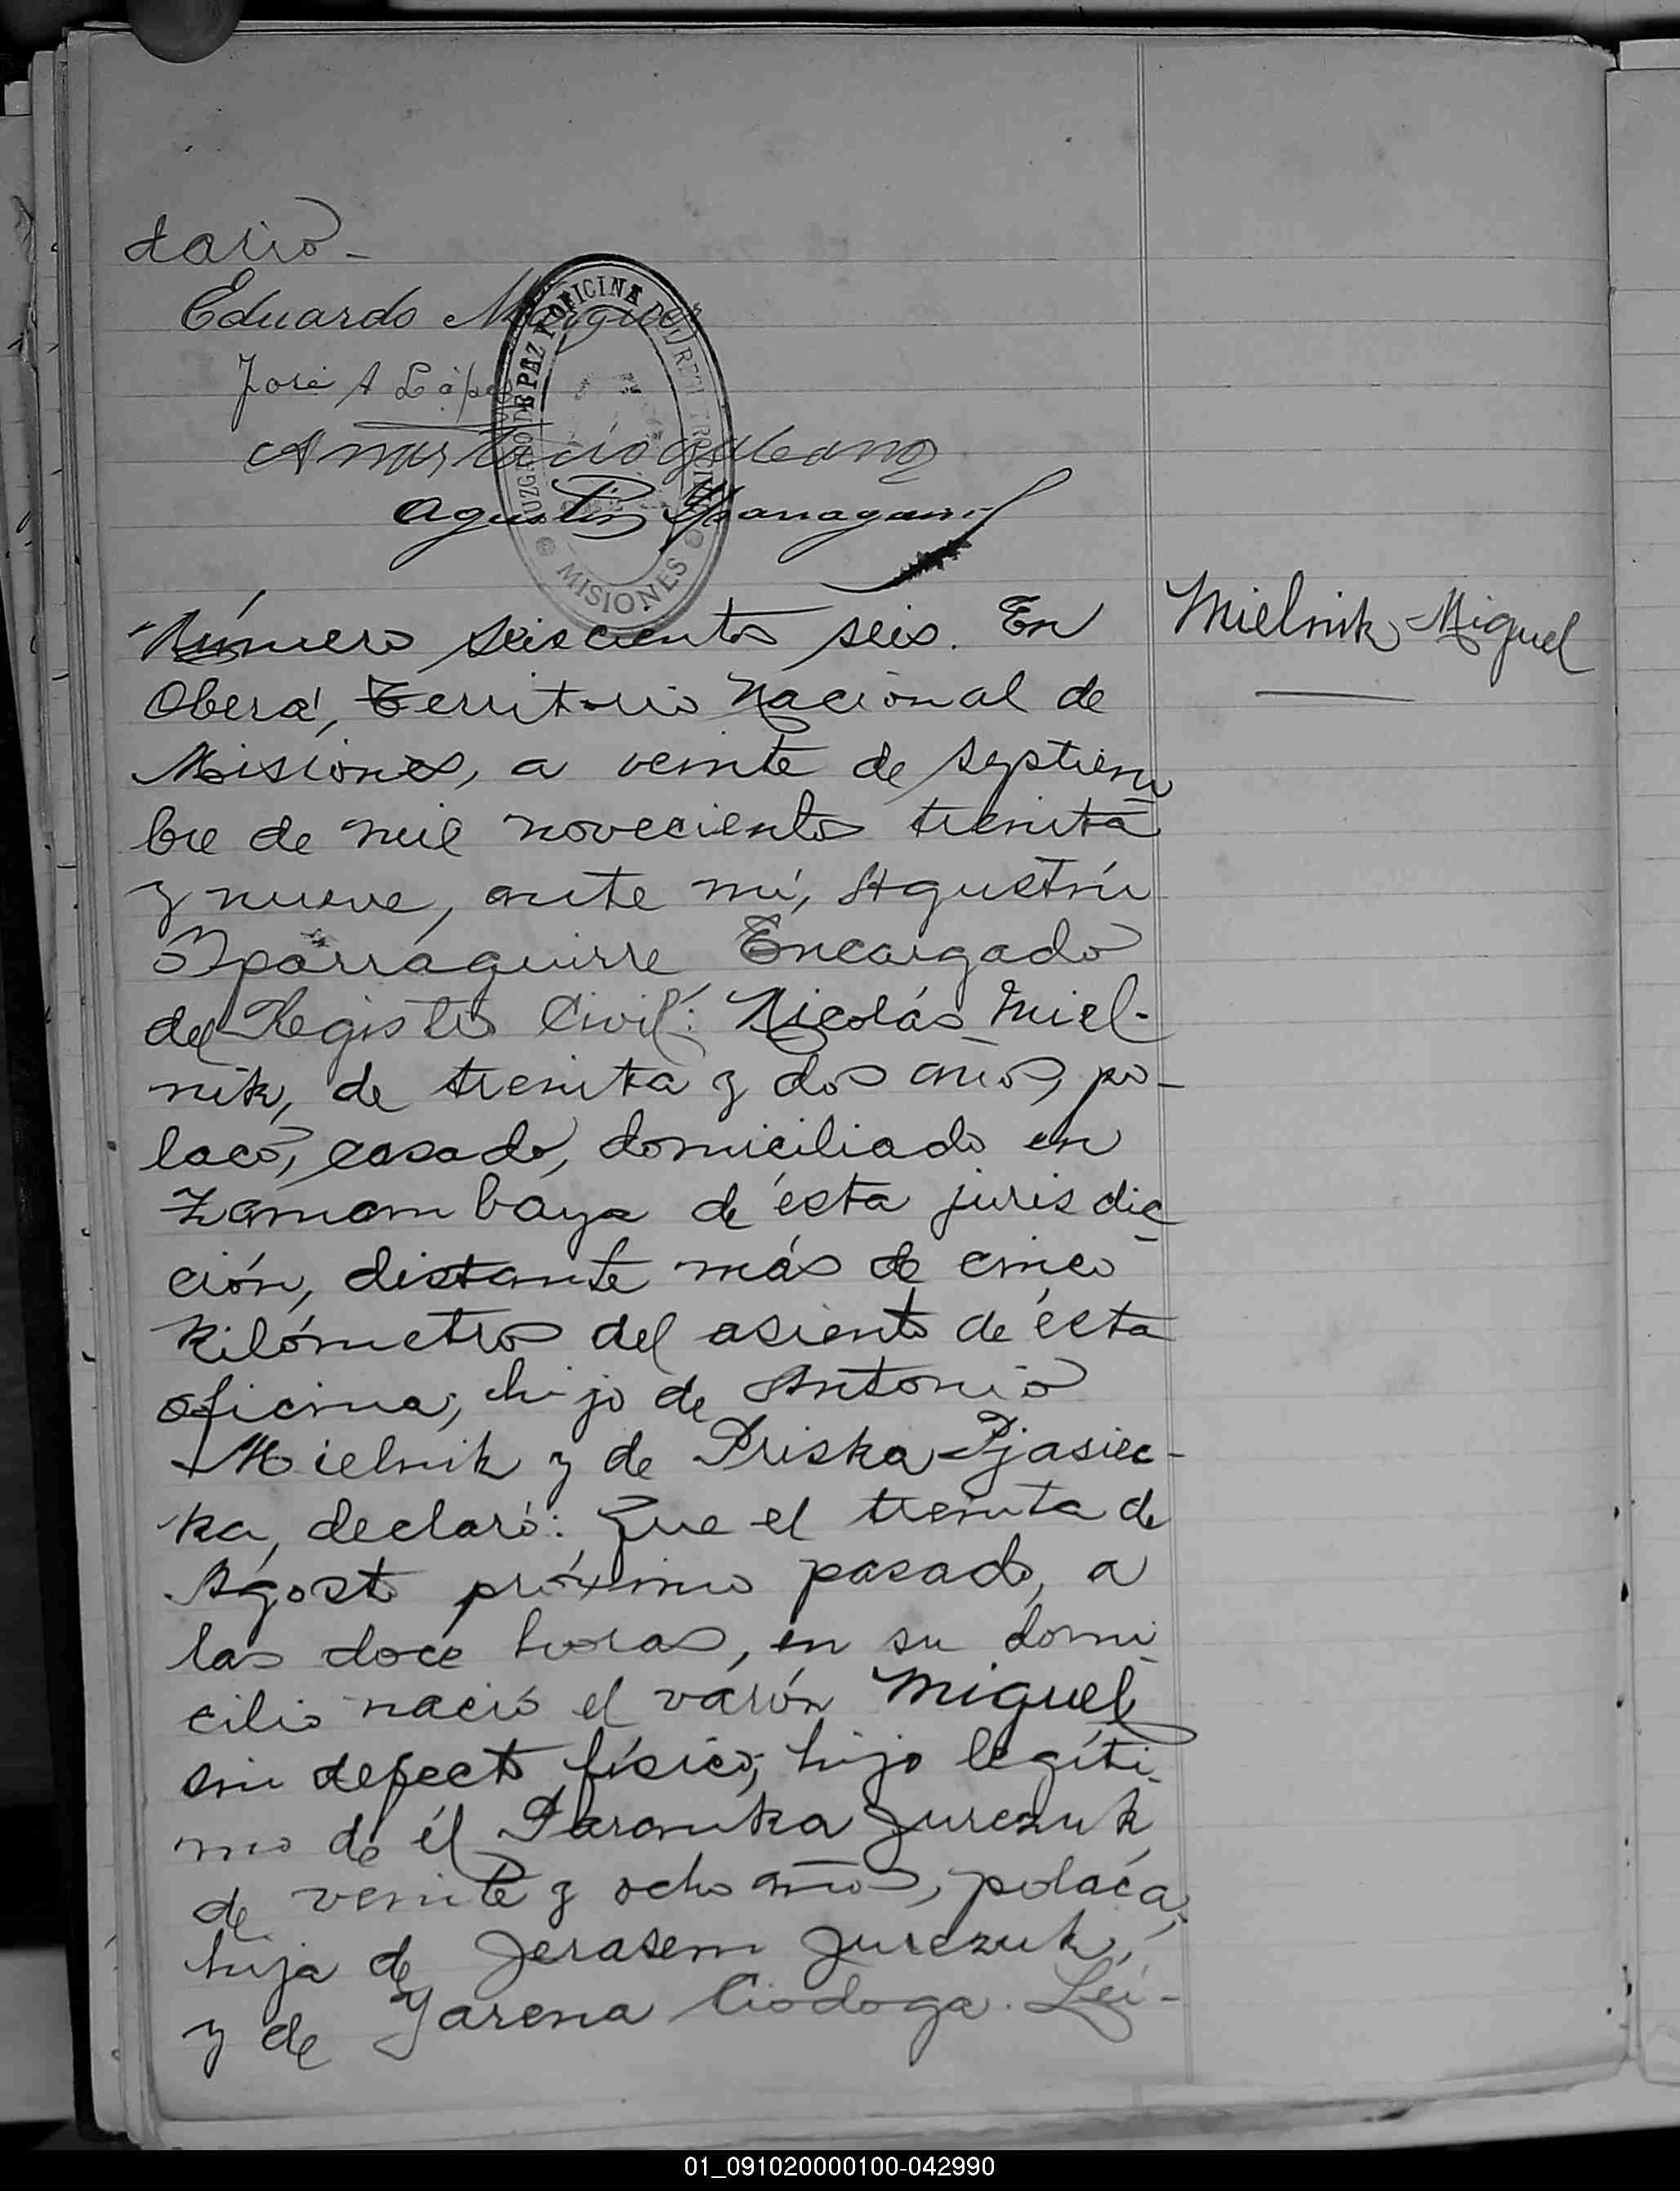 dario-
Eduardo
José A López
Anastacio Galeano
Agustin Yparraguirre
JUZGADO DE PAZ Y OFICINA DEL REGISTRO CIVIL
MISIONES
Número seiscientos seis. En
Mielnik Miguel
Oberá, Territorio Nacional de
Misiones, a veinte de septiem
bre de mil novecientos treinta
y nueve, ante mí, Agustín
Yparraguirre Encargado
del Registro Civil: Nicolás Miel-
nik, de treinta y dos años, po-
laco, casado, domiciliado en
Zamambaya de ésta jurisdic-
ción, distante más de cinco
kilómetros del asiento de ésta
oficina, hijo de Antonio
Mielnik y de Priska Pjasiec-
ka, declaró: Que el treinta de
Agosto próximo pasado, a
las doce horas, en su domi-
cilio nació el varón Miguel
sin defecto físico, hijo legíti-
mo de él Paranka Jurczuk
de veinte y ocho años, polaca,
hija de Jerasem Jurczuk,
y de Yarena Ciodoga. Leí-
01_091020000100-042990